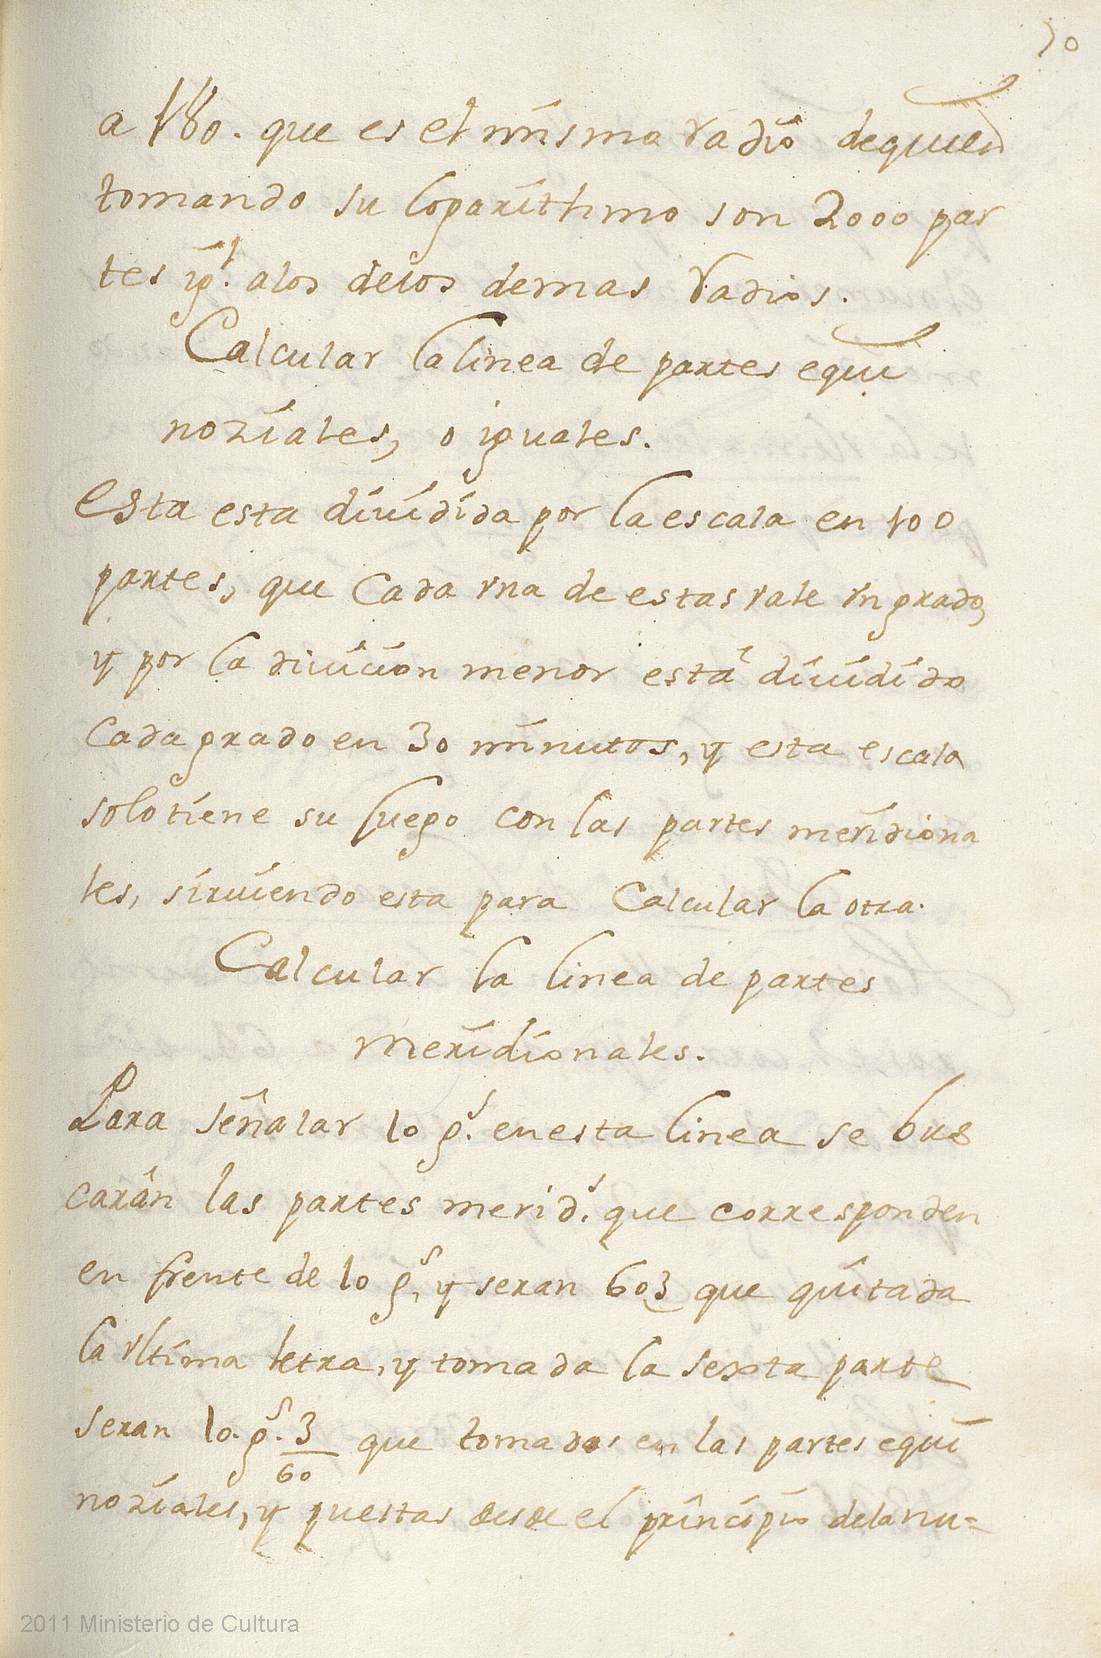 10
a 180. que es el mismo radio de quien
tomando su logarithmo son 2000 par
tes ig.s a los de los demas radios.
Calcular la linea de partes equi
noziales, o iguales.
Esta esta diuidida por la escala en 100
partes, que cada vna de estas vale vn grado,
y por la diuicion menor està diuidido
cada grado en 30 minutos, y esta escala
solo tiene su luego con las partes meridiona
les, siruiendo esta para calcular la otra.
Calcular la linea de partes
meridionales.
Para señalar 10 g.s en esta linea se bus
caràn las partes merid.s que corresponden
en frente de 10 g.s, y seran 603 que quitada
la vltima letra, y tomada la sexta parte
seran 10. g.s 3/60 que tomados en las partes equi
noziales, y puestas desde el principio de la nu=
2011 Ministerio de Cultura